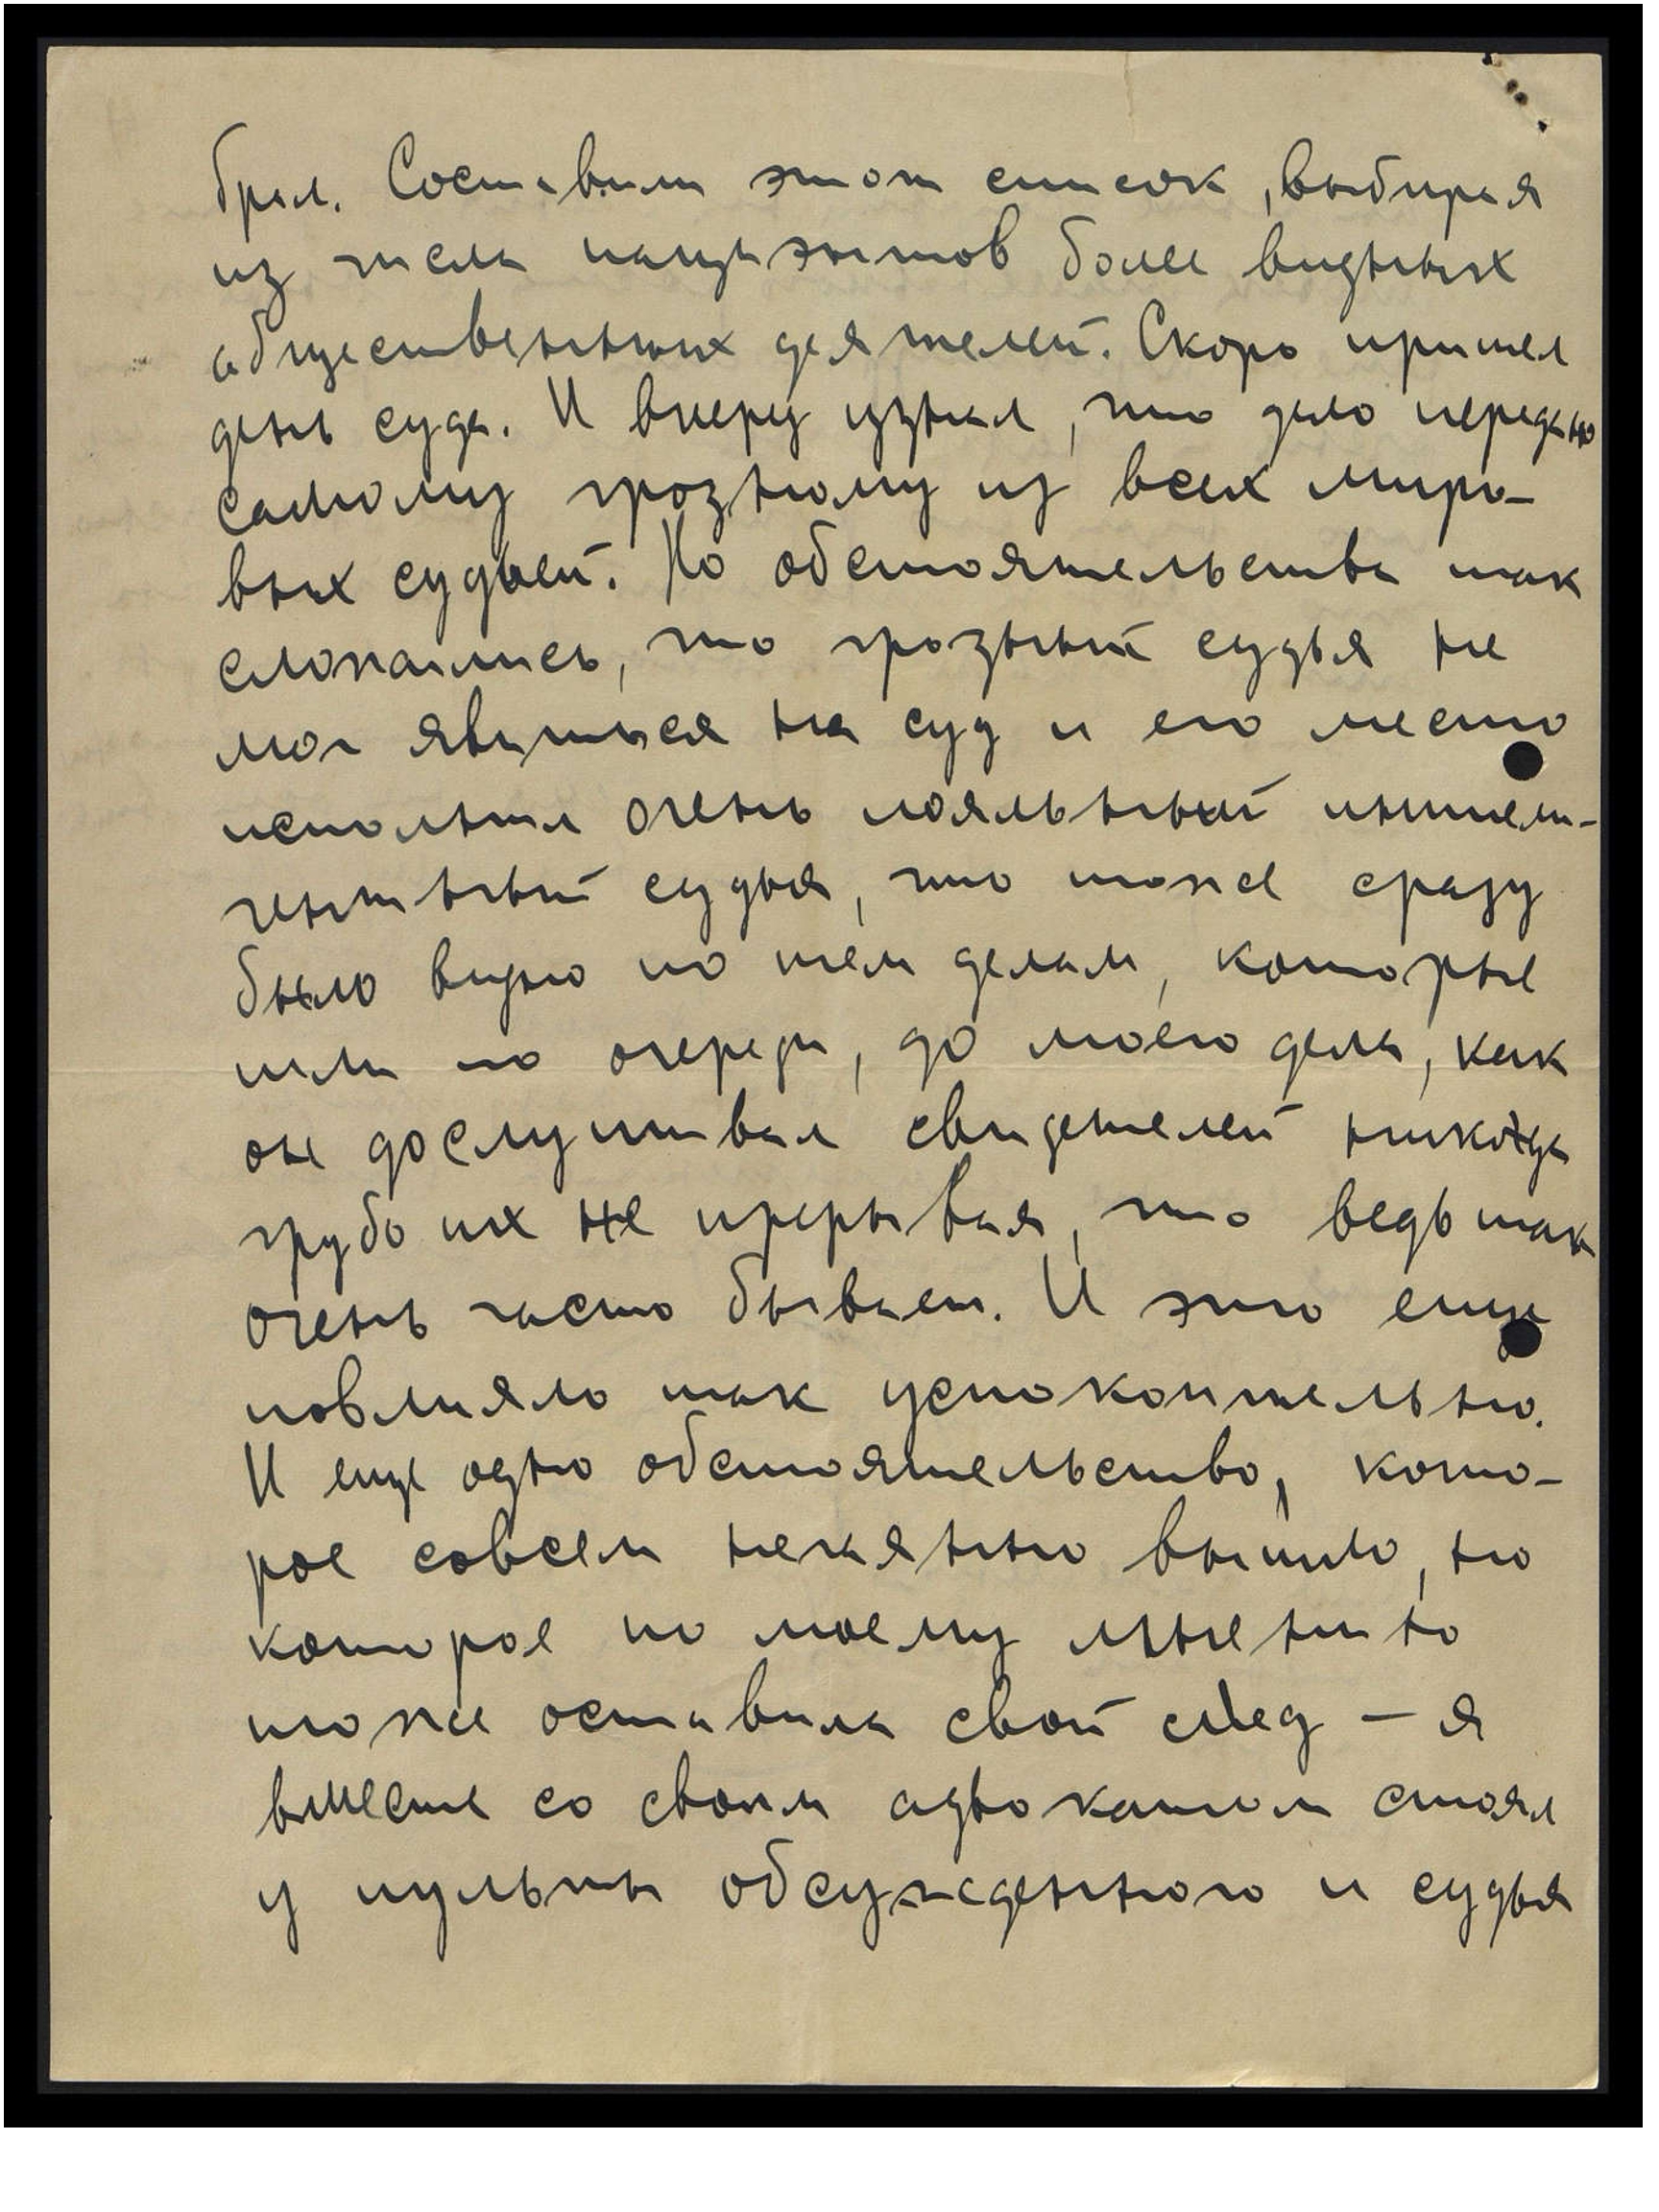 брал. Составили этот список, выбирая
из числа пацьэнтов более видных
общественных деятелей. Скоро пришел
день суда. И вперед узнал, что дело передано
самому грозному из всех миро-
вых судьей. Но обстоятельства так
сложились, что грозный судья не
мог явиться на суд и его место
исполнил очень лояльный интели-
гентный судья, что тоже сразу
было видно по тем делам, которые
шли по очереди, до моего дела, как
он дослушивал свидетелей никогда
грубо их не прерывая, что ведь так
очень часто бывает. И это еще
повлияло так успокоительно.
И еще одно обстоятельство, кото-
рое совсем нечаянно вышло, но
которое по моему мнению
тоже оставила свой след — я
вместе со своим адвокатом стоял
у пульта обсужденного и судья